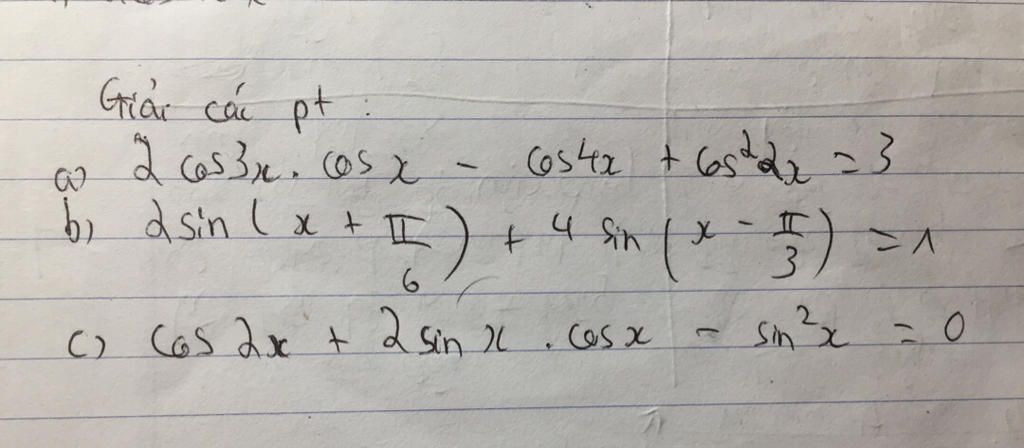 Giải các pt :
a) 2 cos3x . cos x - cos4x + cos²2x = 3
b) 2 sin ( x + π/6 ) + 4 sin ( x - π/3 ) = 1
c) cos 2x + 2 sin x . cosx - sin²x = 0